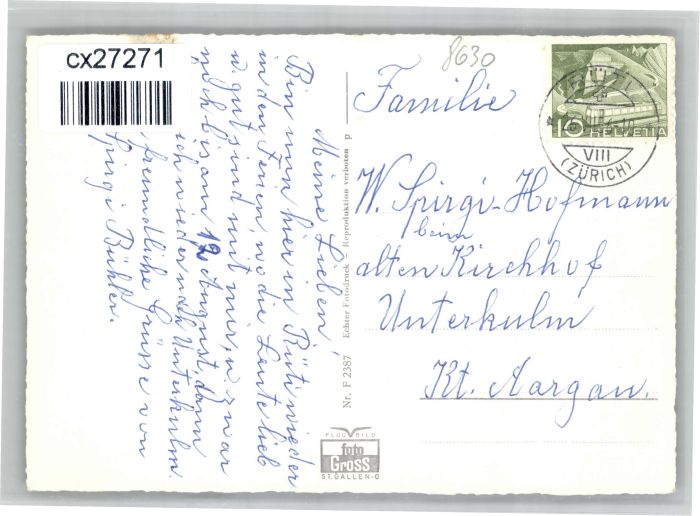 cx27271
8630
10 HELVETIA
VIII
(ZÜRICH)
Familie
W. Spirgi-Hofmann
beim
alten Kirchhof
Unterkulm
Kt. Aargau.
Meine Lieben,
Bin nun hier in Rüti wieder
in den Ferien, wo die Leute lieb
u. gut sind mit mir, u. zwar
noch bis am 12. August, dann
ich wieder nach Unterkulm.
freundliche Grüsse von
Spirgi Bühler.
Nr. F 2387 Echter Fotodruck – Reproduktion verboten p
FLUGBILD
foto
Gross
ST. GALLEN-O